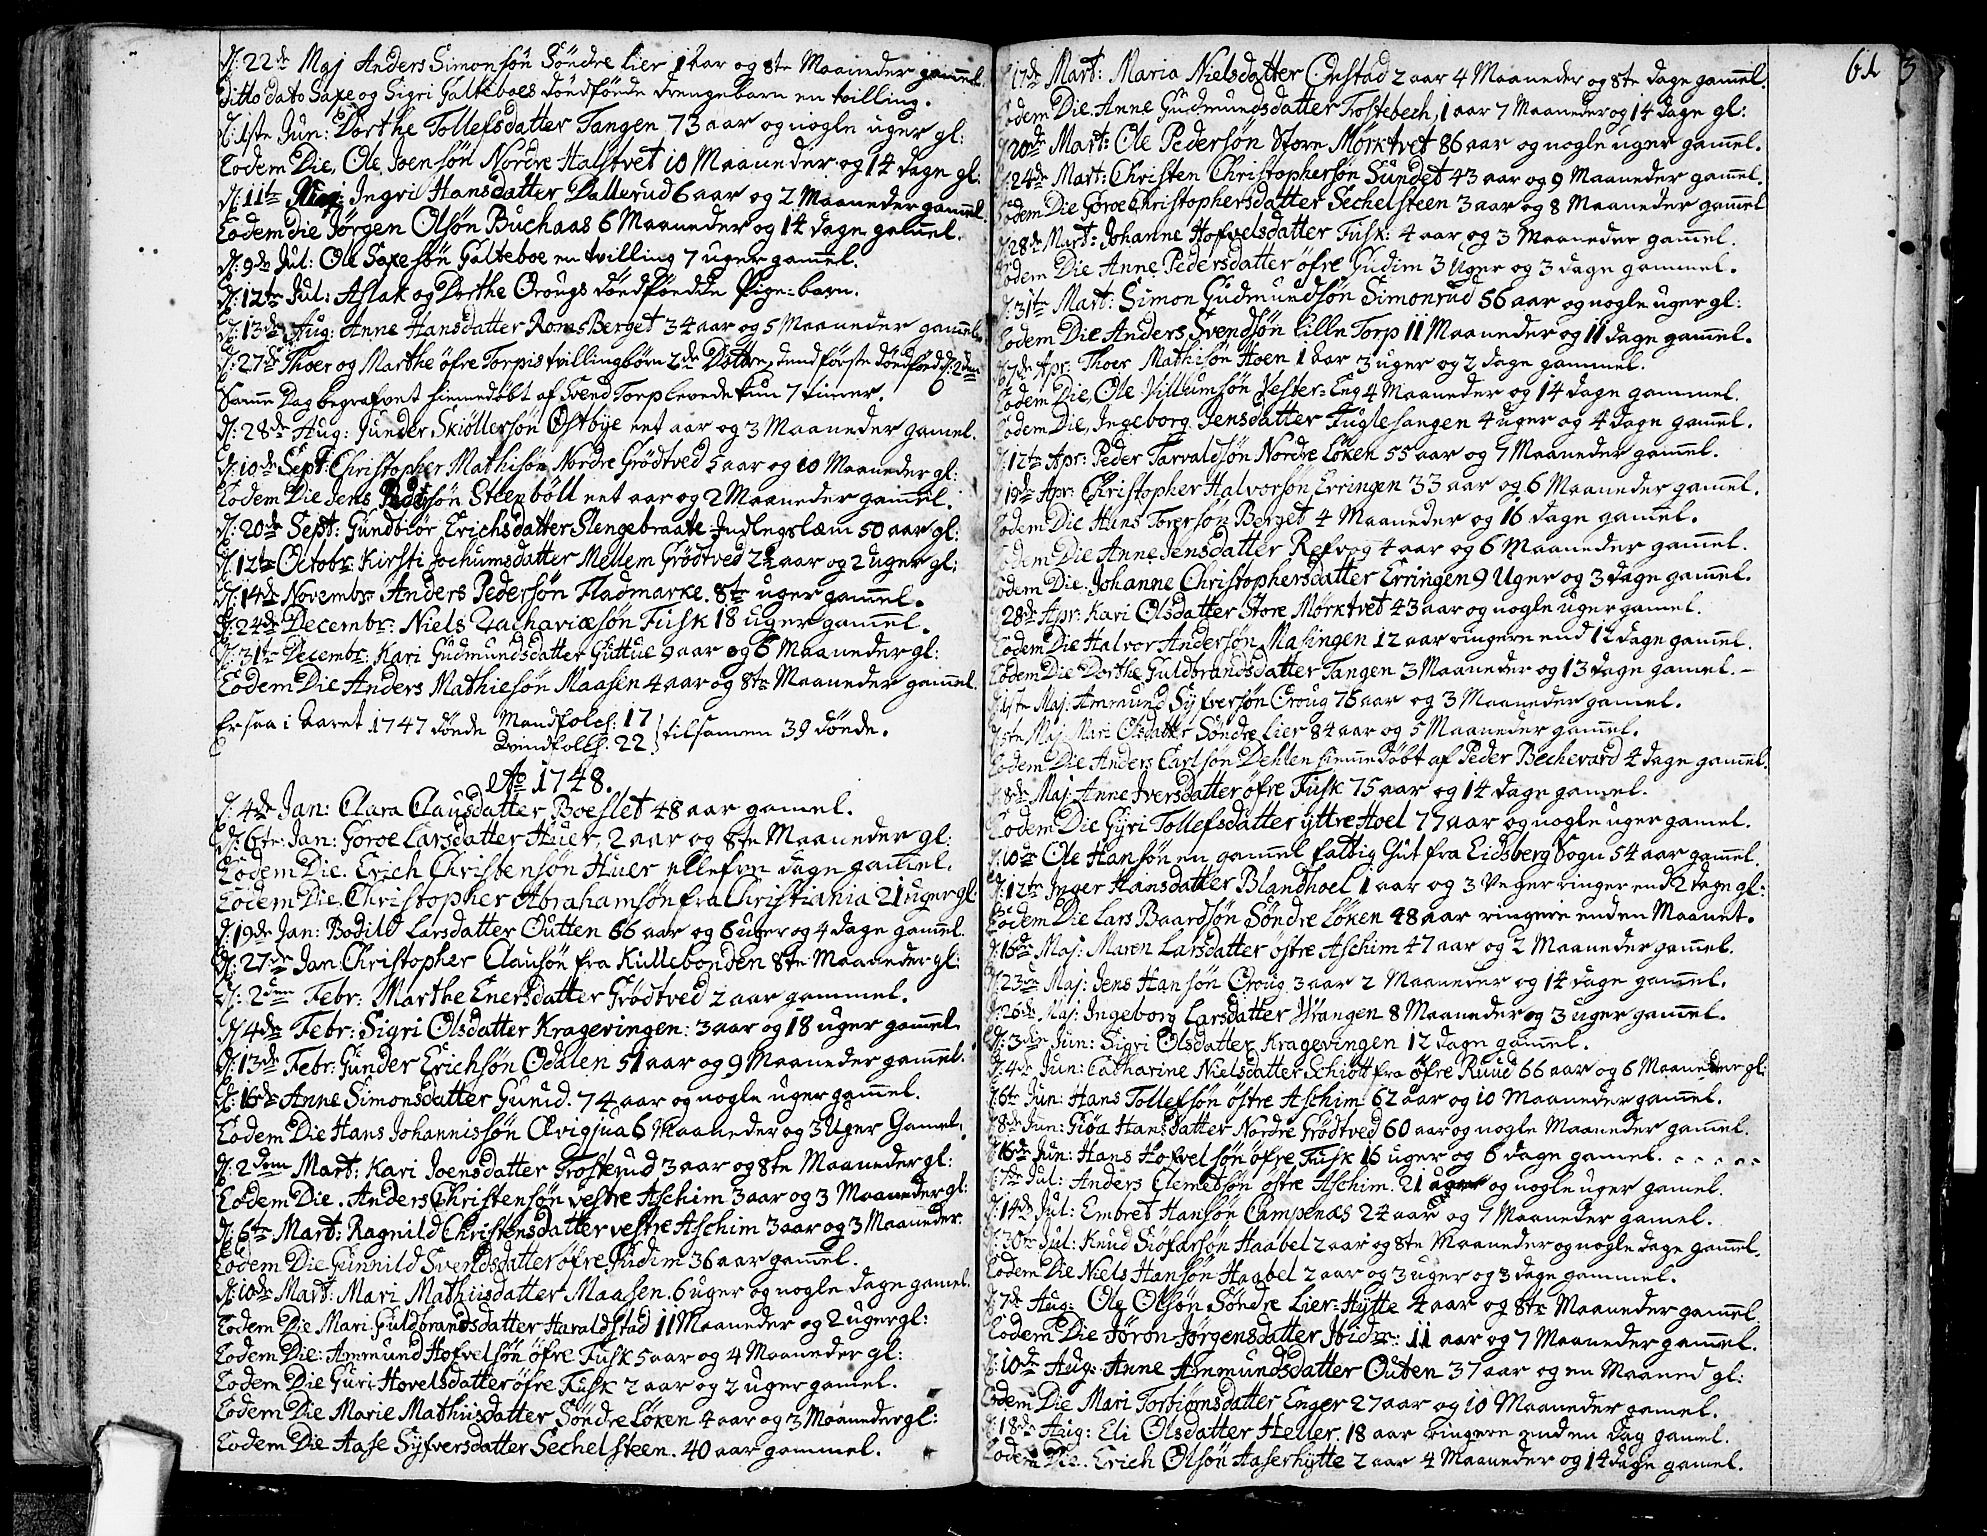 d: 22de Maj Anders Simonsøn Søndre Lier 1 aar og 8te Maaneder gamel.
Ditto dato Saxe og Sigri Galteboes dødfødde drengebarn en tvilling.
d: 1ste Jun: Dorthe Tollefsdatter Tangen 73 aar og nogle uger gl:
Eodem Die, Ole Joensøn Nordre Halstvet 10 Maaneder og 14 dage gl:
d: 11te Ingri Hansdatter Dallerud 6 aar og 2 Maaneder gamel.
Eodem die Jørgen Olsøn Buchaas 6 Maaneder og 14 dage gamel.
d: 9de Jul: Ole Saxesøn Galteboe en tvilling 7 uger gamel.
d: 12te Jul: Aslak og Dorthe Orougs dødfødde Pige-barn.
d: 13de Aug: Anne Hansdatter Roms Berget 34 aar og 5 Maaneder gamel.
d: 27de Thoer og Marthe øfre Torpis tvillingbørn 2de Døttre, dend første dødfød d: 2den
Samme Dag begrafvet hiemedøbt af Svend Torp levede kun 7 timer.
d: 28de Aug: Gunder Skiøllersøn Østbye eet aar og 3 Maaneder gamel.
d: 10de Sept: Christopher Mathisøn Nordre Grødtved 5 aar og 10 Maaneder gl:
Eodem Die Jens Pedersøn Steenbøll eet aar og 2 Maaneder gamel.
d: 20de Sept: Gundbiør Erichsdatter Slengebraate Indlengslæm 50 aar gl:
d. 12te Octobr: Kirsti Jochumsdatter Mellem Grødtved 2½ aar og 2 uger gl:
d. 14de Novembr: Anders Pedersøn Fladmarke. 8te uger gamel.
d: 24de Decembr: Niels Zachariæsøn Fusk 18 uger gamel.
d: 31te Decembr: Kari Gudmundsdatter Guttue 9 aar og 6 Maaneder gl:
Eodem Die Anders Mathiesøn Maasen 4 aar og 8te Maaneder gamel.
Er saa i Aaret 1747 døde Mandfolch: 17
Qvindfolch: 22 tilsamen 39 dønde.
Ao 1748.
d: 4de Jan: Clara Clausdatter Boeslet 48 aar gamel.
d: 6te: Jan: Goroe Larsdatter Huer, 2 aar og 8te Maaneder gl:
Eodem Die. Erich Christensøn Huer ellefve dage gamel.
Eodem Die. Christopher Abrahamsøn fra Christiania 21 uger gl
d: 19de Jan: Bodild Larsdatter Outten 66 aar og 6 uger og 4 dage gamel.
d: 27de Jan: Christopher Clausøn fra Kullebonden 8te Maaneder gl:
d: 2den Febr: Marthe Enersdatter Grødtved 2 aar gammel.
d: 4de Febr: Sigri Olsdatter Kragevingen: 3 aar og 18 uger gamel.
d: 13de Febr: Gunder Erichsøn Odalen 51 aar og 9 Maaneder gamel.
d: 16de Anne Simonsdatter Gunid. 74 aar og nogle uger gamel.
Eodem Die Hans Johannissøn Qvigjua 6 Maaneder og 3 Uger Gamel.
d: 2den Mart: Kari Joensdatter Trosterud 3 aar og 8te Maaneder gl:
Eodem Die. Anders Christensøn vestre Aschim 3 aar og 3 Maaneder gl:
d: 6te Mart: Ragnild Christensdatter vestre Aschim 3 aar og 3 Maaneder.
Eodem Die Gunnild Svendsdatter øfre Gudim 36 aar gamel.
d: 10de Mart: Mari Mathiisdatter Maasen. 6 uger og nogle dage gamel.
Eodem Die Mari Guldbrandsdatter Haraldstad 11 Maaneder og 2 uger gl:
Eodem Die: Ammund Hofvelsøn øfre Fusk 5 aar og 4 Maaneder gl:
Eodem Die Guri Hovelsdatter øfre Fusk 2 aar og 2 uger gamel.
Eodem Die Marie Mathiisdatter Søndre Løken 4 aar og 3 Maaneder gl:
Eodem Die Aase Syfversdatter Sechelsteen. 40 aar gammel.
3
d: 17de Mart: Maria Nielsdatter Onstad 2 aar 4 Maaneder og 8te dage gamel.
Eodem Die Anne Gudmundsdatter Tostebech, 1 aar 7 Maaneder og 14 dage gl:
d: 20de Mart: Ole Pedersøn Store Mørktvet 86 aar og nogle uger gamel.
d: 24de Mart: Christen Christophersøn Sundet 43 aar og 9 Maaneder gamel.
Eodem Die Goroe Christophersdatter Sechelsteen 3 aar og 8 Maaneder gamel
d: 28de Mart: Johanne Hofvelsdatter Fusk: 4 aar og 3 Maaneder gamel.
Eodem Die Anne Pedersdatter øfre Gudim 3 Uger og 3 dage gammel.
d: 31te Mart: Simon Gudmundsøn Simonrud 56 aar og nogle uger gl:
Eodem Die Anders Svendsøn lille Torp 11 Maaneder og 11 dage gamel.
d: 7de Apr: Thoer Mathisøn Hoen 1 aar 3 uger og 2 dage gammel.
Eodem Die, Ole Villumsøn Vester-Eng 4 Maaneder og 14 dage gammel.
Eodem Die, Ingeborg Jensdatter Fuglesangen 4 uger og 4 dage gamel.
d: 12te Apr: Peder Tarvaldsøn Nordre Løken 55 aar og 7 Maaneder gamel.
d: 19de Apr: Christopher Halvorsøn Erringen 33 aar og 6 Maaneder gamel.
Eodem Die Hans Torersøn Berget 4 Maaneder og 16 dage gamel.
Eodem Die Anne Jensdatter Refvog 4 aar og 6 Maaneder gamel.
Eodem Die. Johanne Christophersdatter Erringen 9 Uger og 3 dage gamel.
d: 28de Apr: Kari Olsdatter Store Mørktvet 43 aar og nogle uger gamel.
Eodem Die Halvor Andersøn Masingen 12 aar ringere end 12 dage gamel.
Eodem Die Dorthe Guldbrandsdatter Tangen 3 Maaneder og 13 dage gamel. -
d: 1ste Maj: Ammund Syfversøn Oroug 76 aar og 3 Maaneder gamel.
d: 5te Maj: Mari Olsdatter Søndre Lier 84 aar og 5 Maaneder gamel.
Eodem Die Anders Carlsøn Dehlen hiemedøbt af Peder Bechevard 4 dage gamel.
d: 8de Maj: Anne Iversdatter øfre Fusk 75 aar og 14 dage gamel.
Eodem Die Gyri Tollefsdatter yttre Hoel 77 aar og nogle uger gamel.
d: 10de Ole Hansøn en gammel fattig Gut fra Eidsberg Sogn 54 aar gamel.
d: 12te Inger Hansdatter Blandhoel 1 aar og 3 Veger ringer end 2 dage gl:
Eodem Die Lars Baardsøn Søndre Løken 48 aar ringere end en Maanet.
d: 16de Maj: Maren Larsdatter østre Aschim 47 aar og 2 Maaneder gamel.
d: 23de Maj: Jens Hansøn Oroug 3 aar 2 Maaneder og 14 dage gamel.
d: 26de Maj: Ingeborg Larsdatter Vrangen 8 Maaneder og 3 uger gamel.
d: 3die Jun: Sigri Olsdatter Kragevingen 12 dage gamel.
d: 4de Jun: Catharine Nielsdatter Schiøtt fra øfre Ruud 66 aar og 6 Maaneder gl:
d: 6te Jun: Hans Tollefsøn østre Aschim 62 aar og 10 Maaneder gamel.
d: 8de Jun: Giøa Hansdatter Nordre Grødtved 60 aar og nogle Maaneder gamel.
d: 16te Jun: Hans Hofvelsøn øfre Fusk 16 uger og 6 dage gamel.
d: 7de Jul: Anders Clemetsøn østre Aschim. 21 uger og nogle uger gamel.
d: 14de Jul: Embret Hansøn Campenæs 24 aar og 7 Maaneder gamel.
d: 30te Jul: Knud Siofarsøn Haabel 2 aar og 8te Maaneder og nogle dage gamel.
Eodem Die Niels Hansøn Haabel 2 aar og 3 uger og 3 dage gammel.
d: 7de Aug: Ole Olsøn Søndre Lier-Hytte 4 aar og 8te Maaneder gammel.
Eodem Die Jøron Jørgensdatter Ibidem: 11 aar og 7 Maaneder gammel.
d: 10de Aug: Anne Ammundsdatter Outen 37 aar og en Maaned gl:
Eodem Die Mari Torbiørnsdatter Enger 27 aar og 10 Maaneder gamel.
d: 18de Aug: Eli Olsdatter Heller. 18 aar ringere end en Dag gamel.
Eodem Die. Erich Olsøn Aaserhytte 2 aar 4 Maaneder og 14 dage gamel.